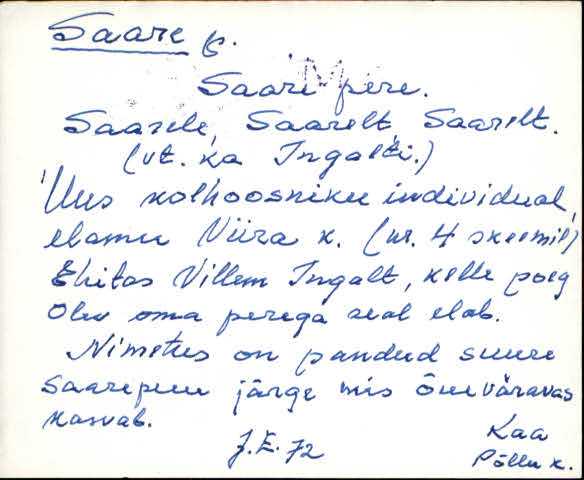 Saare p.
Saare pere.
Saarele, Saarelt, Saarelt.
(vt. ka Ingaldi.)
Uus kolhoosniku individual
elamu Viira k. (nr. 4 skeemil)
Ehitas Villem Ingalt, kelle poeg
Olev oma perega seal elab.
Nimetus on pandud suure
saarepuu järge mis õueväravas
kasvab.
J.E. 72
Kaa
Põllu k.